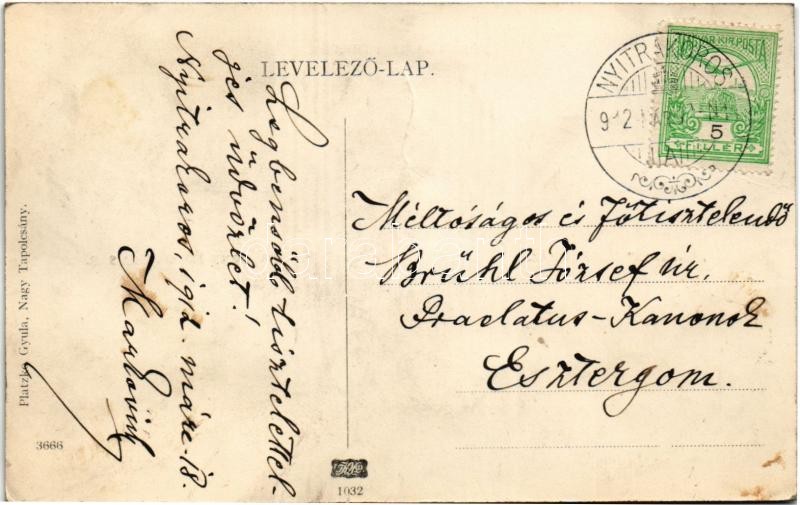 LEVELEZŐ-LAP.
Legbensőbb tisztelettel-
jes üdvözlet!
Nyitrakoros, 1912. márc. 18.
Markovich
Méltóságos és Főtisztelendő
Brühl József úr.
Praelatus-Kanonok
Esztergom.
NYITRAKOROS
MAGYAR KIR. POSTA
5
FILLÉR
Platzko Gyula, Nagy Tapolcsány.
3666
1032